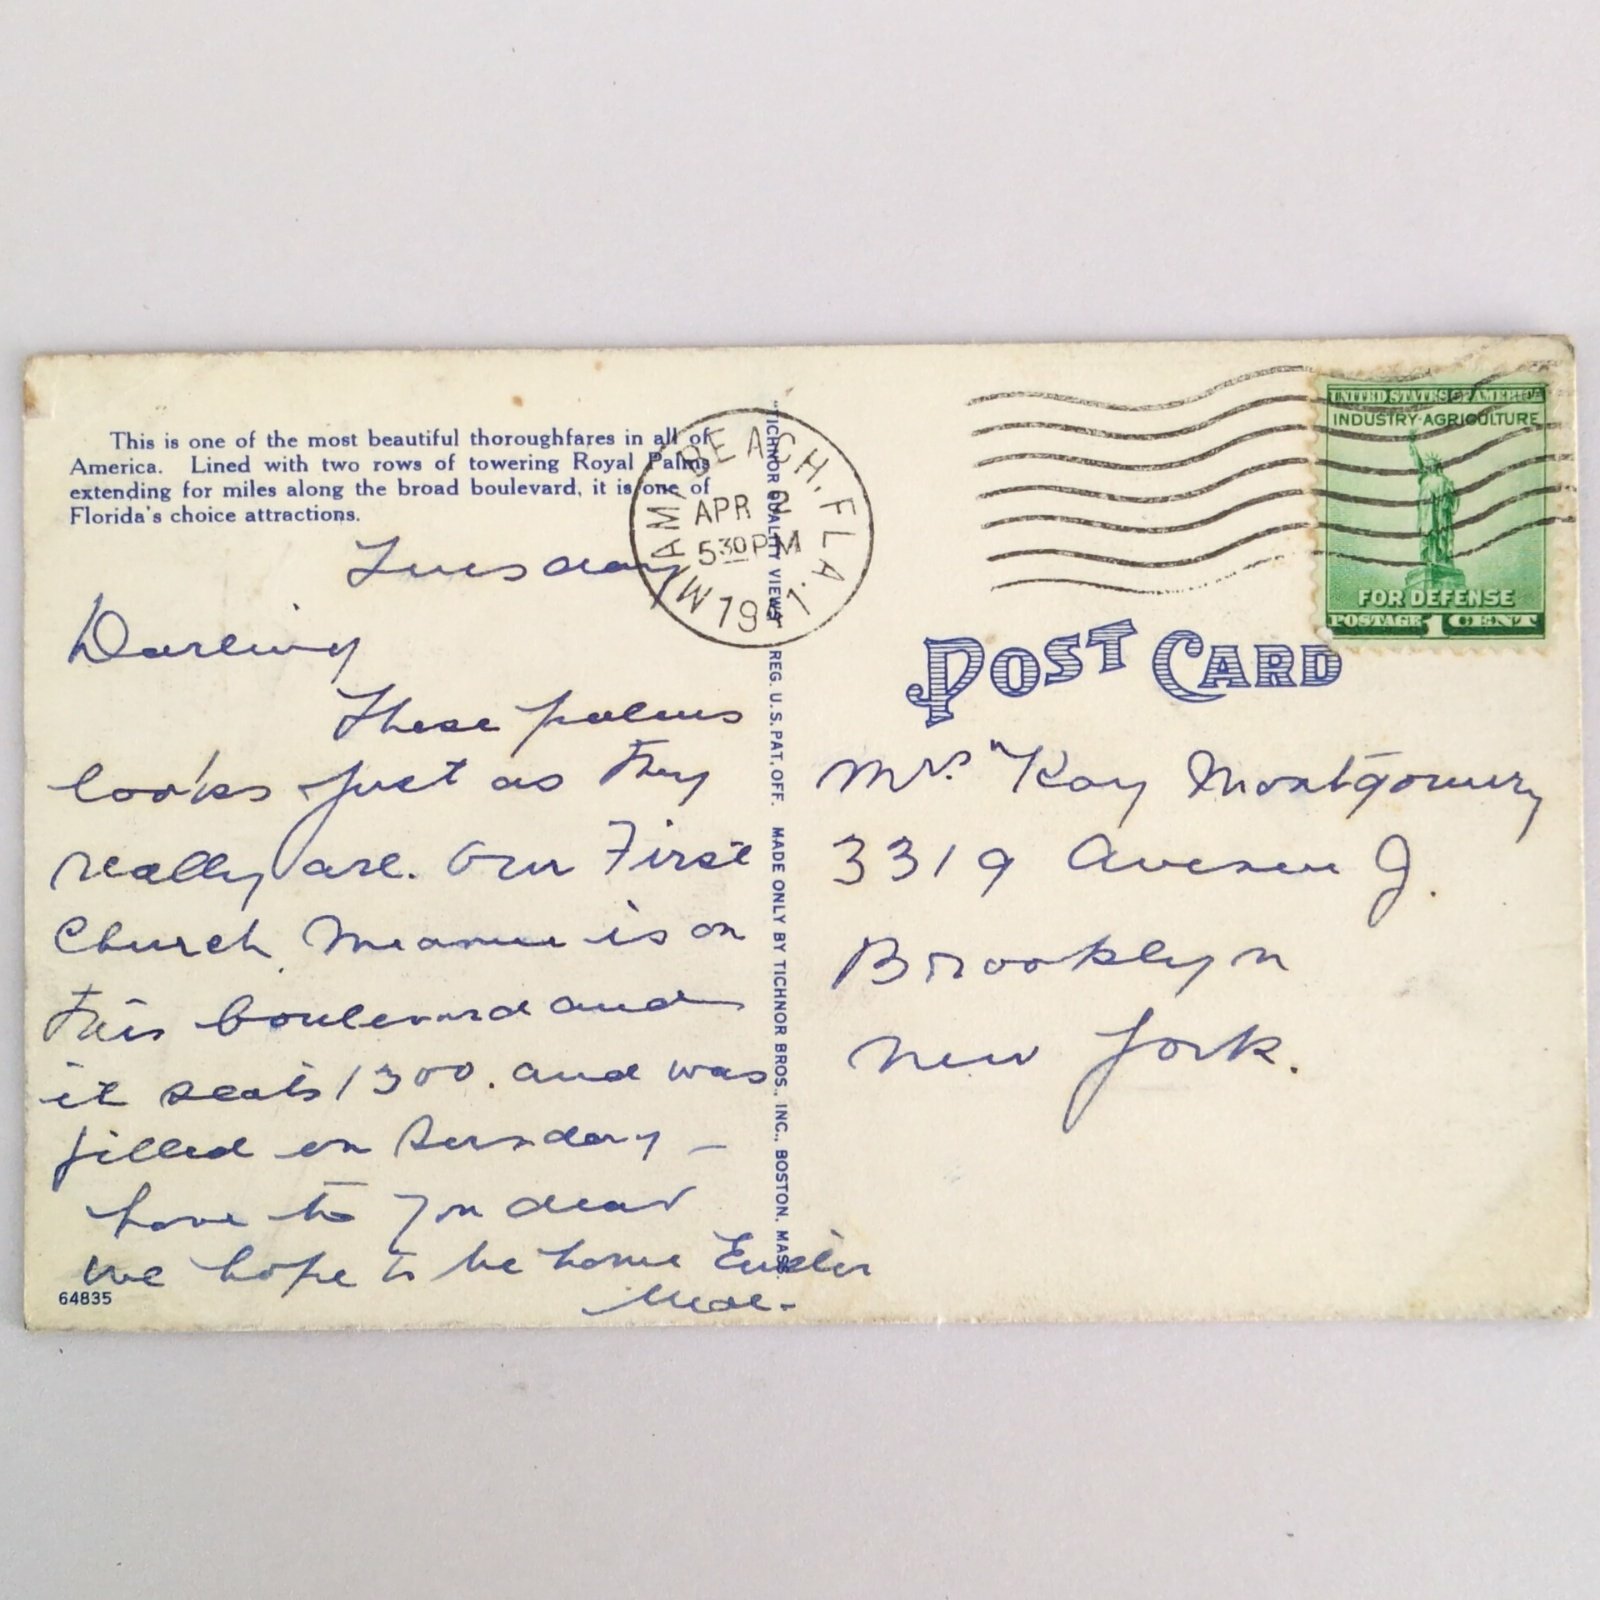 This is one of the most beautiful thoroughfares in all of
America. Lined with two rows of towering Royal Palms
extending for miles along the broad boulevard, it is one of
Florida's choice attractions.
Tuesday
Darling
These palms
looks just as they
really are. Our First
Church Miami is on
this boulevard and
it seats 1300. and was
filled on Sunday —
love to you dear
we hope to be home Easter
64835
"TICHNOR QUALITY VIEWS" REG. U.S. PAT. OFF. MADE ONLY BY TICHNOR BROS., INC., BOSTON, MASS.
MIAMI BEACH, FLA.
APR 2
5 30 PM
1941
UNITED STATES OF AMERICA
INDUSTRY·AGRICULTURE
FOR DEFENSE
POSTAGE 1 CENT
POST CARD
Mrs. Kay Montgomery
3319 Avenue J.
Brooklyn
New York.